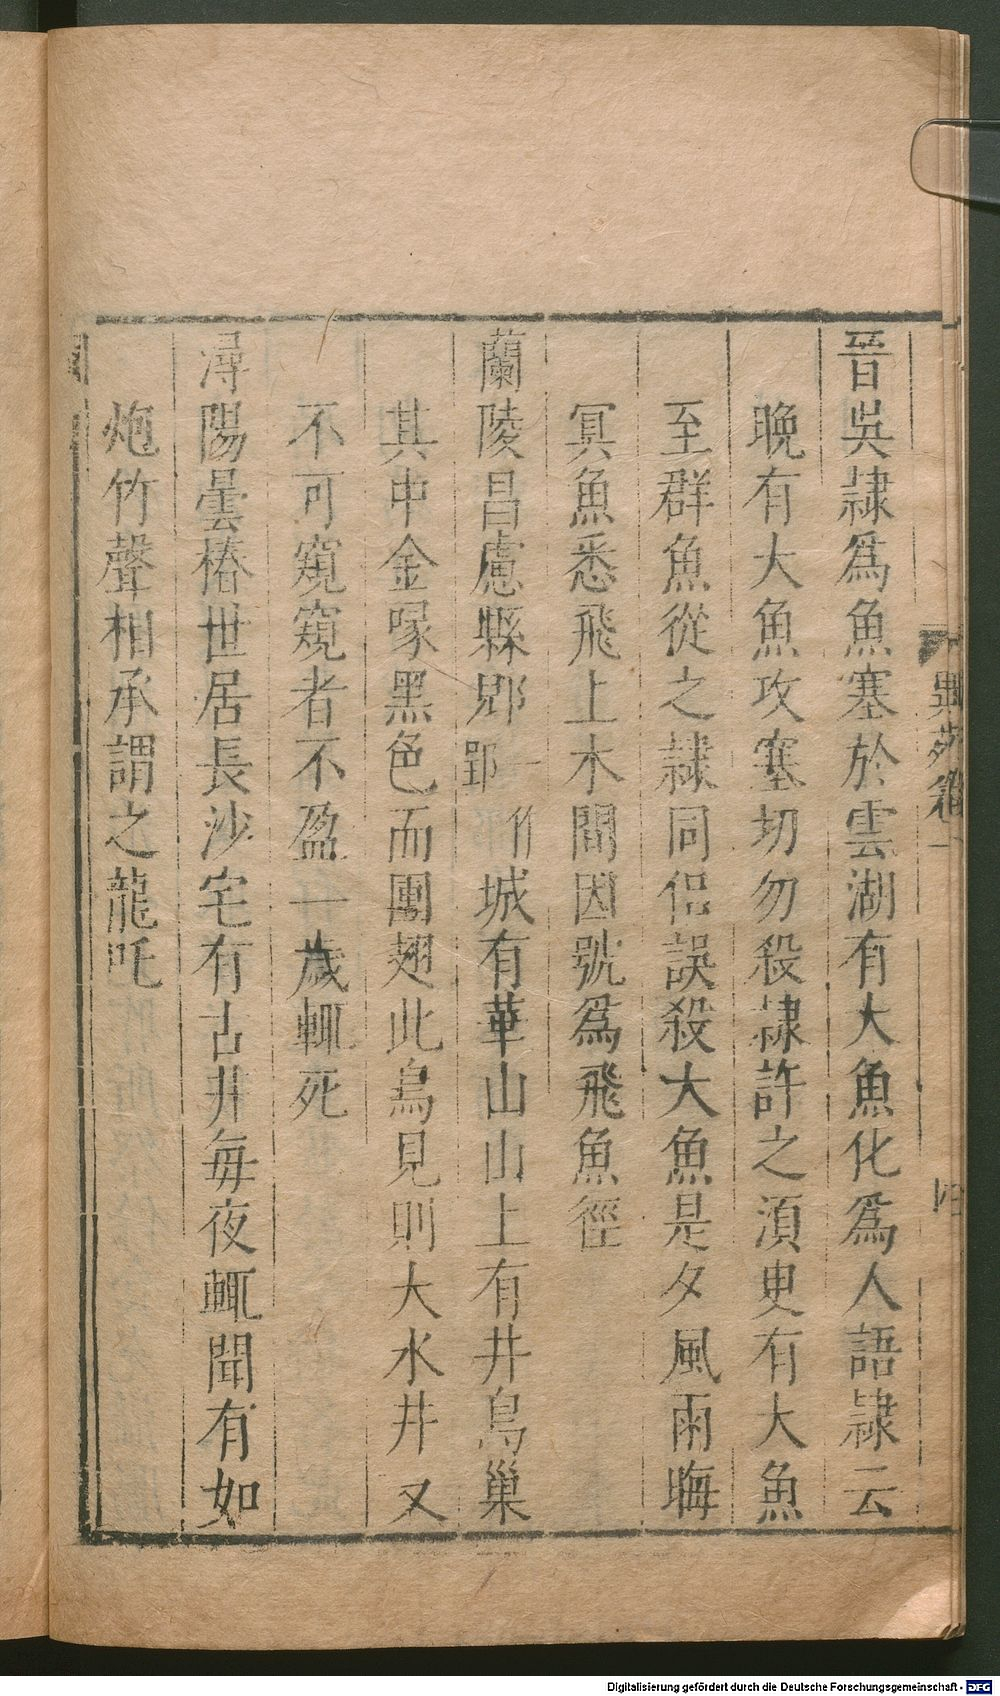 晉吳隷爲魚塞於雲湖有大魚化爲人語隷云
晩有大魚攻塞切勿殺隷許之湏㬰有大魚
至群魚從之隷同侣誤殺大魚是夕風雨晦
冥魚悉飛上木間因號爲飛魚徑
蘭陵昌慮縣郳一作郢城有華山山上有井鳥巢
其中金喙黑色而團翅此鳥見則大水井又
不可窺窺者不盈一歲輙死
潯陽曇椿世居長沙宅有古井每夜輙聞有如
炮竹聲相承謂之龍吒
異苑卷一
四
Digitalisierung gefördert durch die Deutsche Forschungsgemeinschaft - DFG